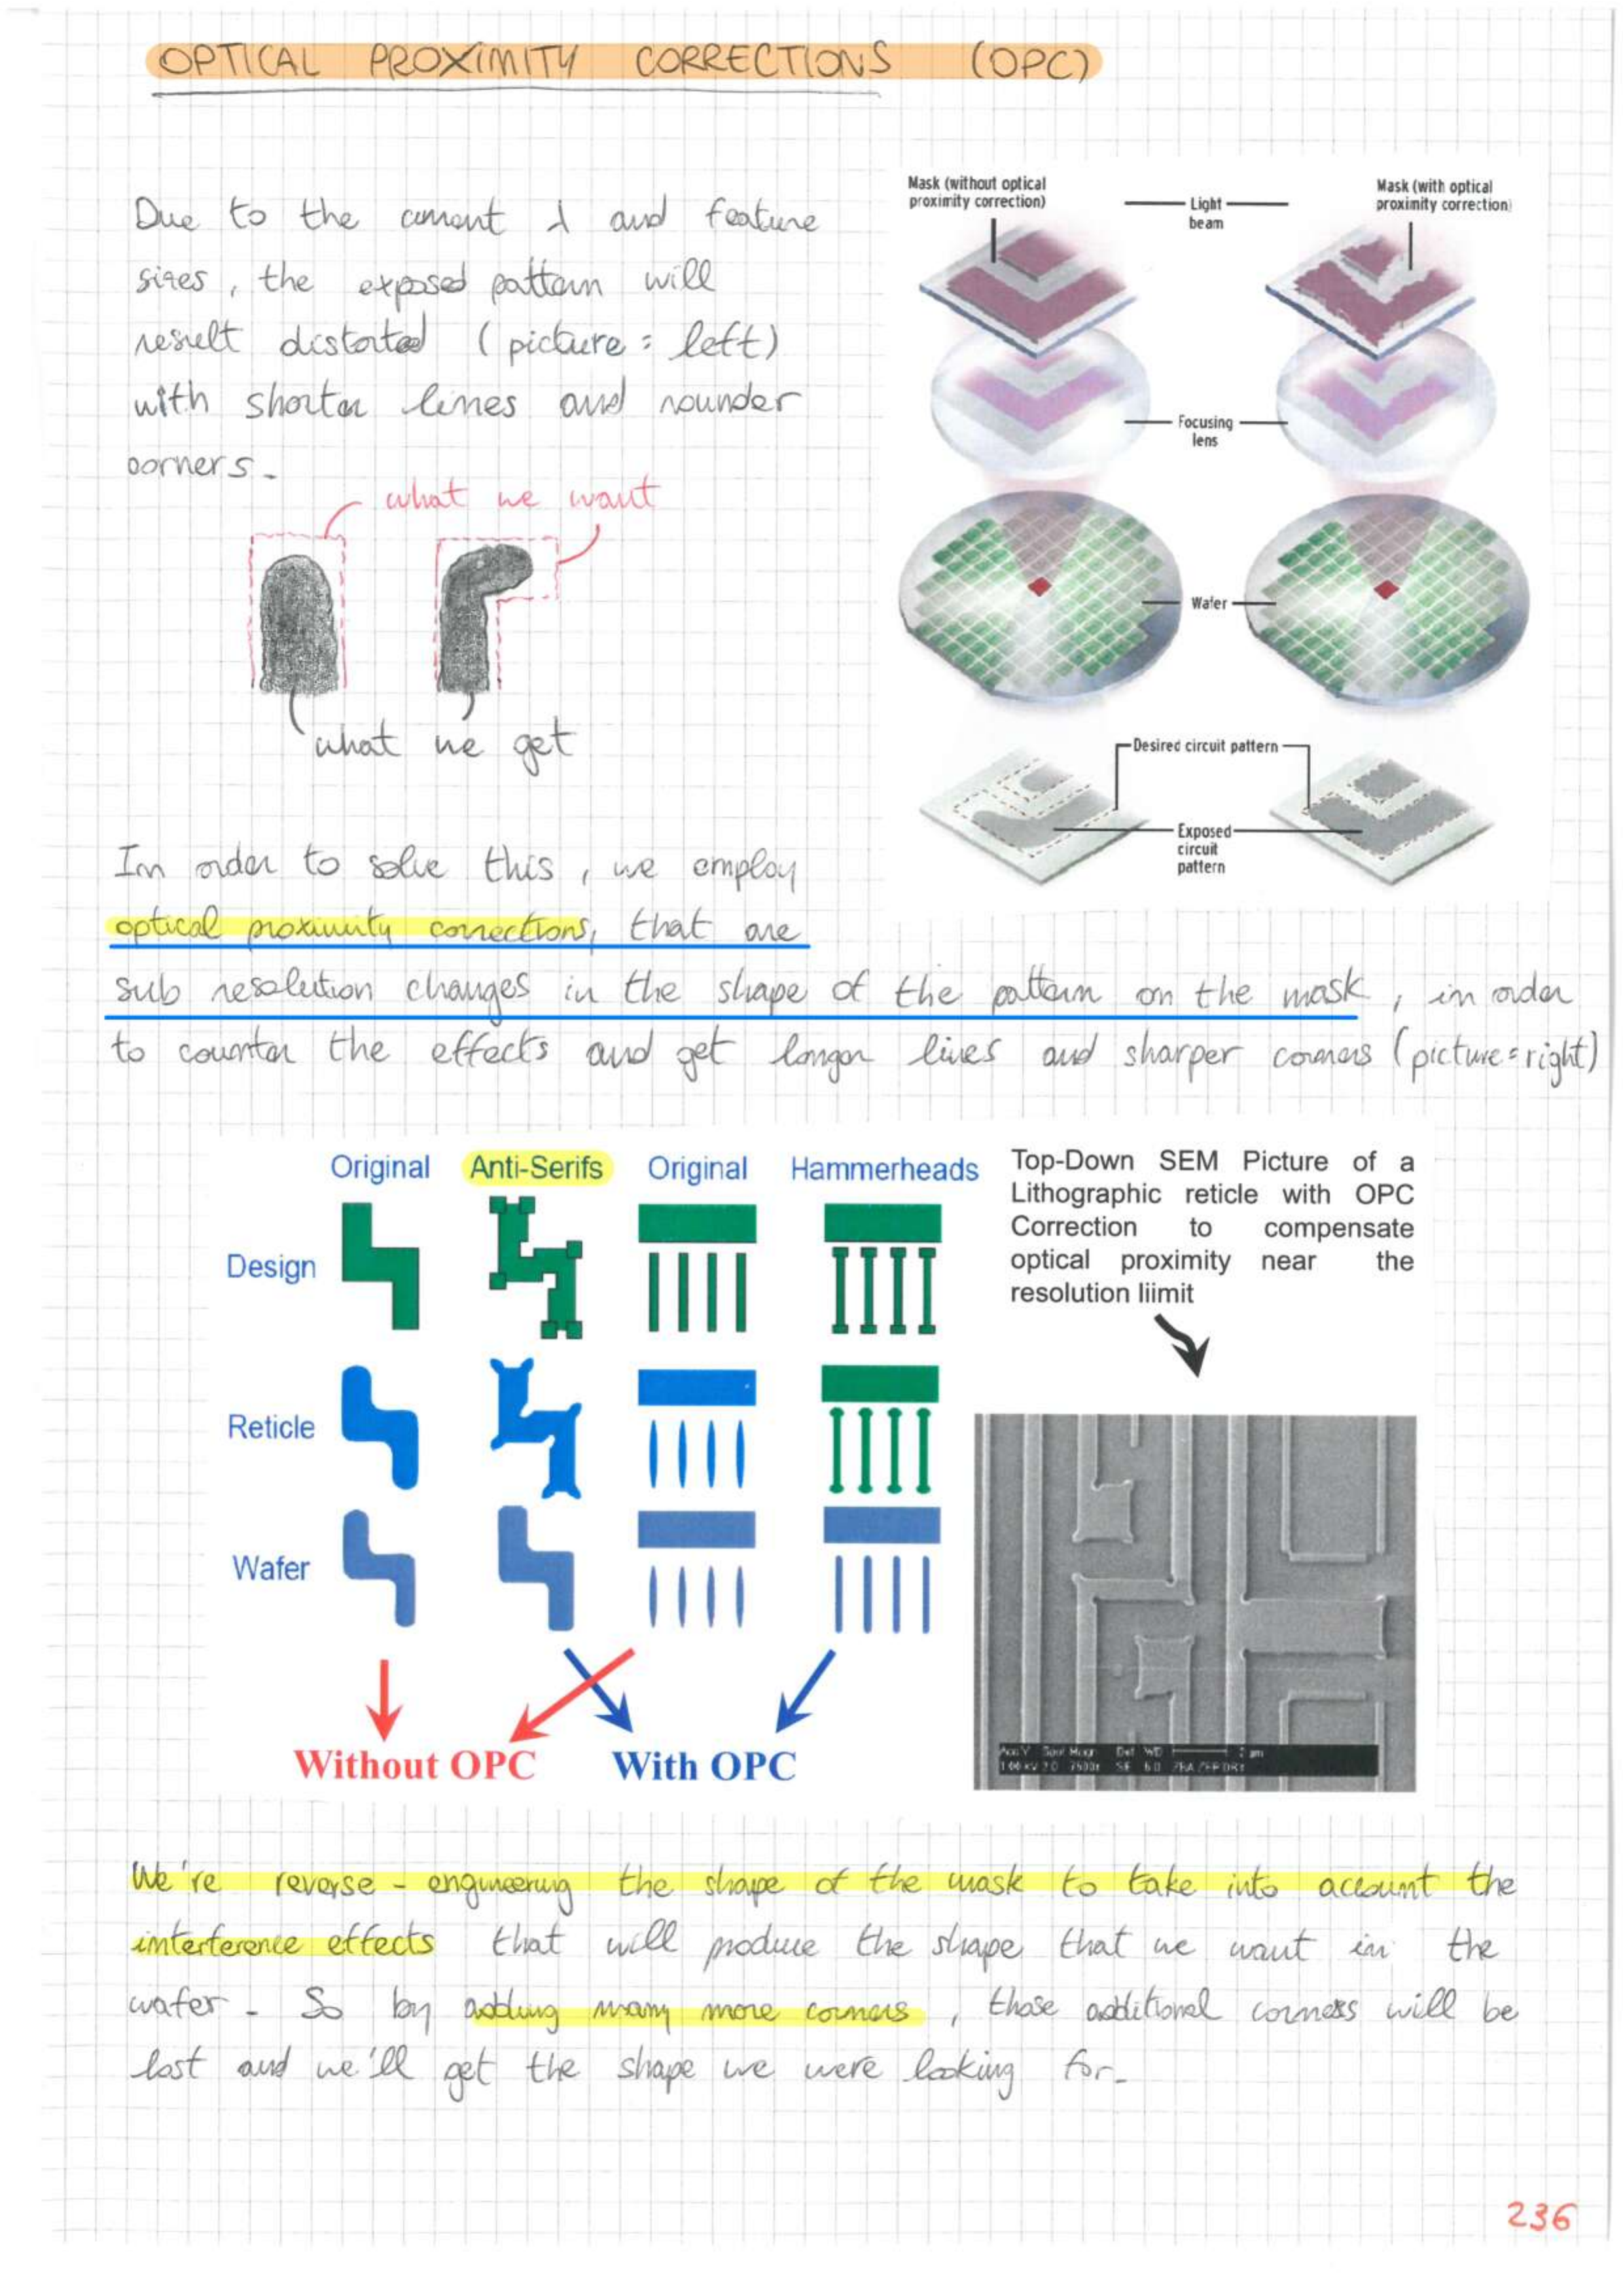 OPTICAL PROXIMITY CORRECTIONS (OPC)
Due to the current λ and feature
sizes, the exposed pattern will
result distorted (picture: left)
with shorter lines and rounder
corners.
what we want
what we get
Mask (without optical
proximity correction)
Light
beam
Mask (with optical
proximity correction)
Focusing
lens
Wafer
Desired circuit pattern
Exposed
circuit
pattern
In order to solve this, we employ
optical proximity corrections, that are
sub resolution changes in the shape of the pattern on the mask, in order
to counter the effects and get longer lines and sharper corners (picture=right)
Original Anti-Serifs Original Hammerheads
Design
Reticle
Wafer
Without OPC With OPC
Top-Down SEM Picture of a
Lithographic reticle with OPC
Correction to compensate
optical proximity near the
resolution liimit
We're reverse-engineering the shape of the mask to take into account the
interference effects that will produce the shape that we want in the
wafer. So by adding many more corners, those additional corners will be
lost and we'll get the shape we were looking for.
236